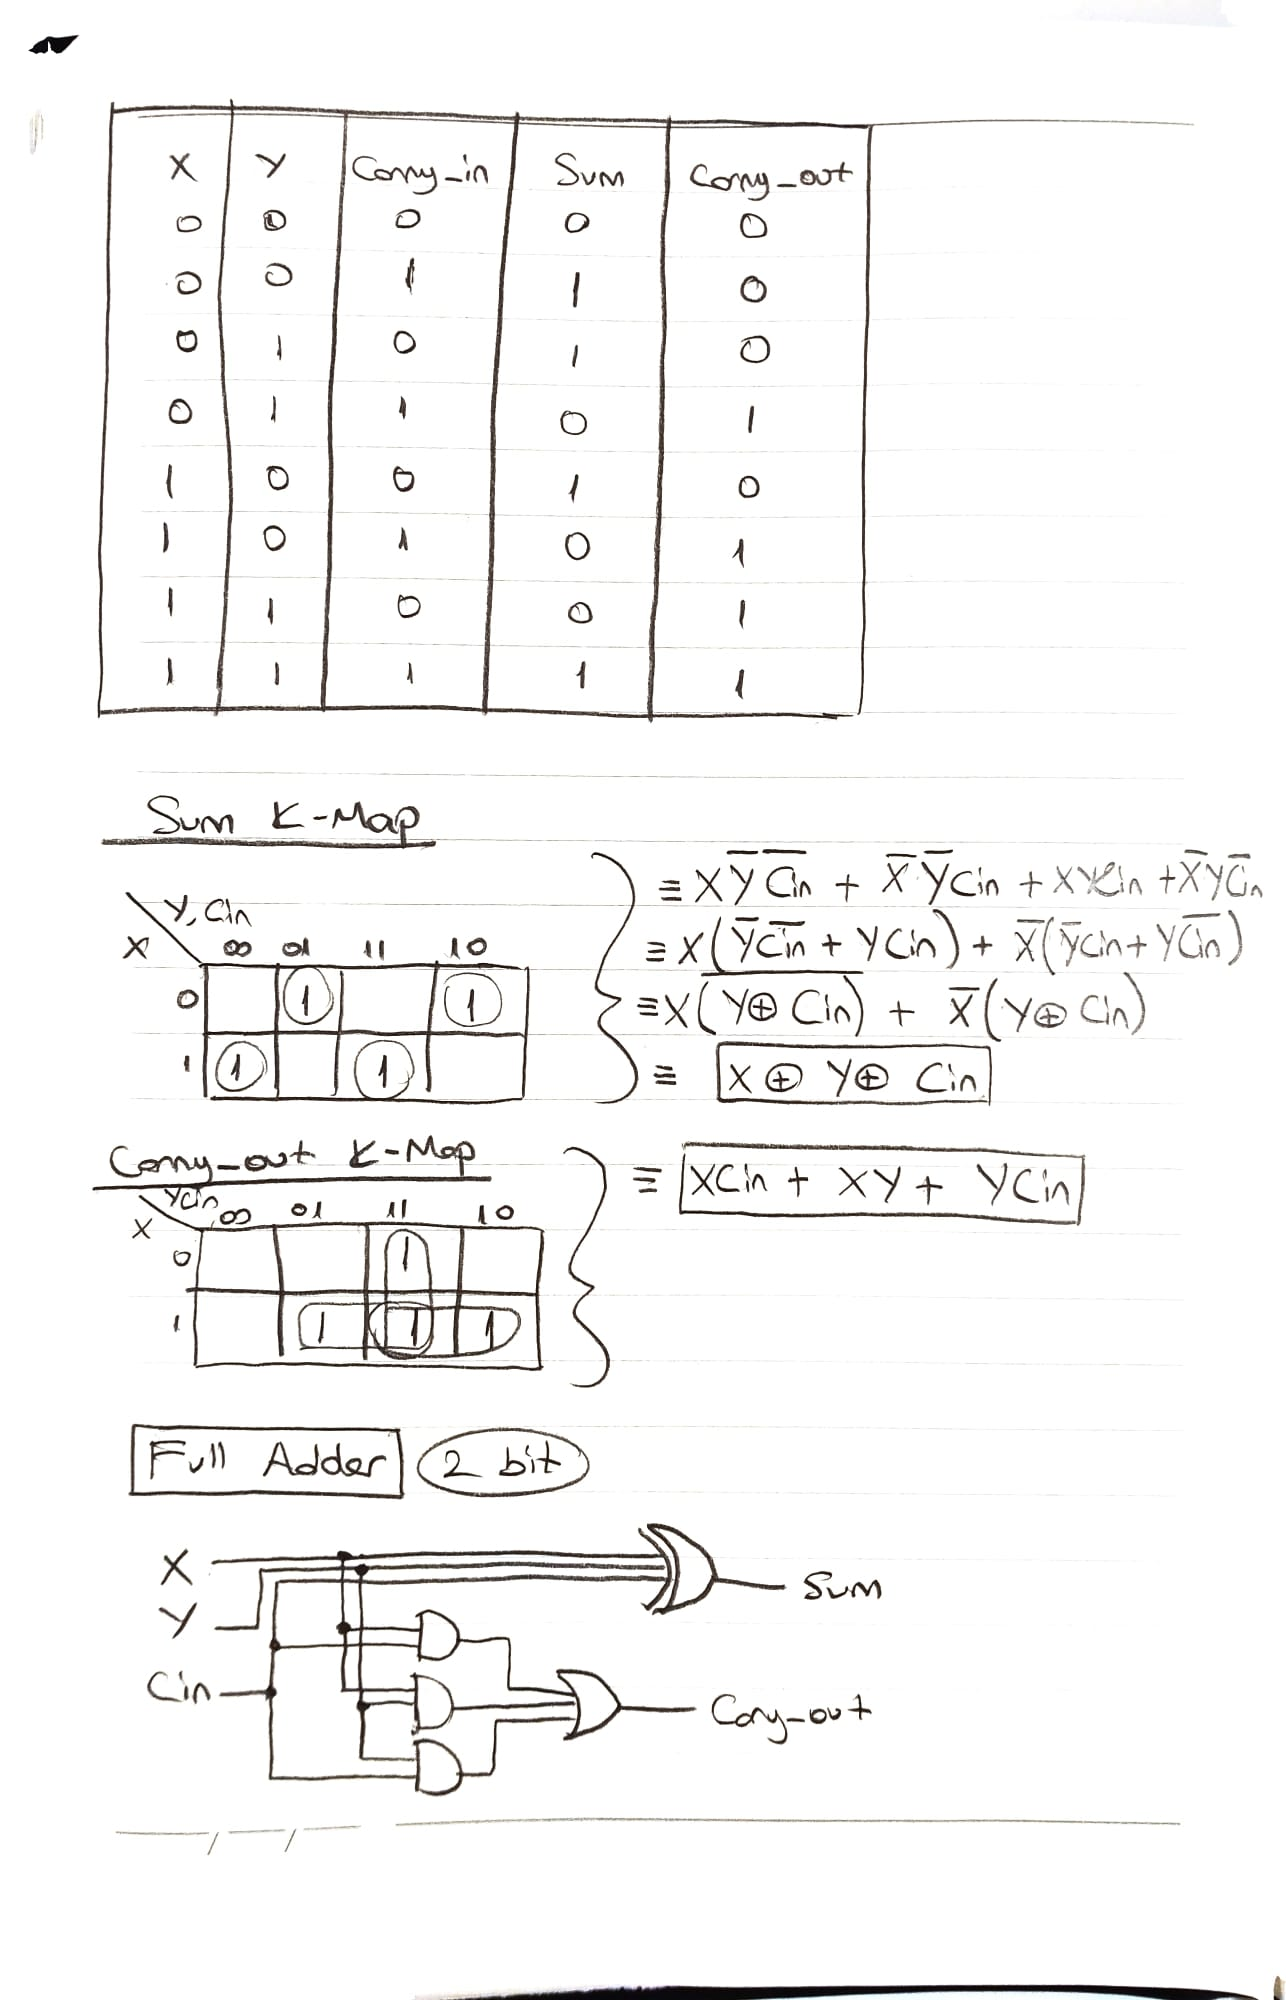 X Y Carry_in Sum Carry_out
0 0 0 0 0
0 0 1 1 0
0 1 0 1 0
0 1 1 0 1
1 0 0 1 0
1 0 1 0 1
1 1 0 0 1
1 1 1 1 1
Sum K-Map
Y, Cin
X 00 01 11 10
0 1 1
1 1 1
≡ XY̅C̅i̅n̅ + X̅Y̅Cin + XYCin + X̅YC̅i̅n̅
≡ X(Y̅C̅i̅n̅ + YCin) + X̅(Y̅Cin + YC̅i̅n̅)
≡ X(̅Y̅⊕̅ ̅C̅i̅n̅)̅ + X̅(Y⊕ Cin)
≡ X ⊕ Y⊕ Cin
Carry_out K-Map
YCin
X 00 01 11 10
0 1
1 1 1 1
≡ XCin + XY + YCin
Full Adder 2 bit
X
Y
Cin
Sum
Cary_out